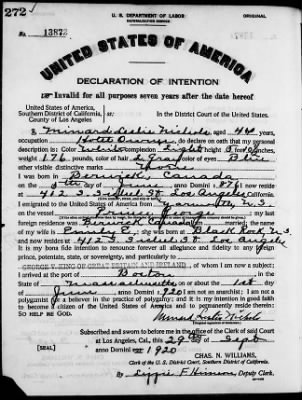 272
U. S. DEPARTMENT OF LABOR
NATURALIZATION SERVICE
ORIGINAL
No. 13872
UNITED STATES OF AMERICA
DECLARATION OF INTENTION
Invalid for all purposes seven years after the date hereof
United States of America,
Southern District of California, ss:
County of Los Angeles
In the District Court of the United States.
I, Leslie Nichols, aged 44 years,
occupation Hotel, do declare on oath that my personal
description is: Color White, complexion Light, height 5 feet inches,
weight 176 pounds, color of hair Gray, color of eyes Blue
other visible distinctive marks None
I was born in Berwick, Canada
on the day of June, anno Domini I now reside
at Los Angeles, California.
I emigrated to the United States of America from Yarmouth, N.S.
on the vessel Prince George
foreign residence was Berwick Canada married; the name of my
wife is Emily E.; she was born at N.S.
and now resides at Los Angeles
It is my bona fide intention to renounce forever all allegiance and fidelity to any foreign
prince, potentate, state, or sovereignty, and particularly to
GEORGE V, KING OF GREAT BRITAIN AND IRELAND, of whom I am now a subject;
I arrived at the port of Boston, in the
State of Massachusetts, on or about the 1st day
of June, anno Domini 1920; I am not an anarchist; I am not a
polygamist nor a believer in the practice of polygamy; and it is my intention in good faith
to become a citizen of the United States of America and to permanently reside therein:
SO HELP ME GOD.
Leslie Nichols
Subscribed and sworn to before me in the office of the Clerk of said Court
at Los Angeles, Cal., this 29 day of Sept
[SEAL]
anno Domini 1920
CHAS. N. WILLIAMS,
Clerk of the U. S. District Court, Southern District of California.
By Deputy Clerk.